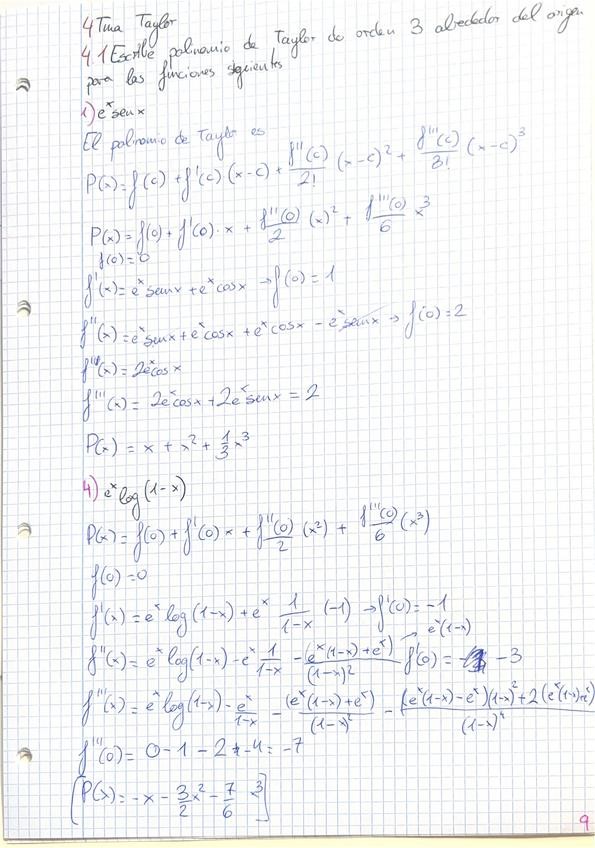 4 Tma Taylor
4.1 Escribe polinomio de Taylor de orden 3 alrededor del origen
para las funciones siguientes
1) e^x sen x
El polinomio de Taylor es
P(x) = f(c) + f'(c) (x-c) + f''(c)/2! (x-c)^2 + f'''(c)/3! (x-c)^3
P(x) = f(0) + f'(0)·x + f''(0)/2 (x)^2 + f'''(0)/6 x^3
f(0) = 0
f'(x) = e^x sen x + e^x cos x → f(0) = 1
f''(x) = e^x sen x + e^x cos x + e^x cos x - e^x sen x → f(0) = 2
f''(x) = 2e^x cos x
f'''(x) = 2e^x cos x + 2e^x sen x = 2
P(x) = x + x^2 + 1/3 x^3
4) e^x log(1-x)
P(x) = f(0) + f'(0) x + f''(0)/2 (x^2) + f'''(0)/6 (x^3)
f(0) = 0
f'(x) = e^x log(1-x) + e^x 1/(1-x) (-1) → f'(0) = -1
e^x(1-x)
f''(x) = e^x log(1-x) - e^x 1/(1-x) - (e^x(1-x) + e^x)/(1-x)^2 f'(0) = -3
f'''(x) = e^x log(1-x) - e^x/(1-x) - (e^x(1-x) + e^x)/(1-x)^2 - (e^x(1-x) - e^x)(1-x)^2 + 2(e^x(1-x) + e^x)/(1-x)^4
f'''(0) = 0 - 1 - 2 - 4 = -7
[P(x) = -x - 3/2 x^2 - 7/6 x^3]
9